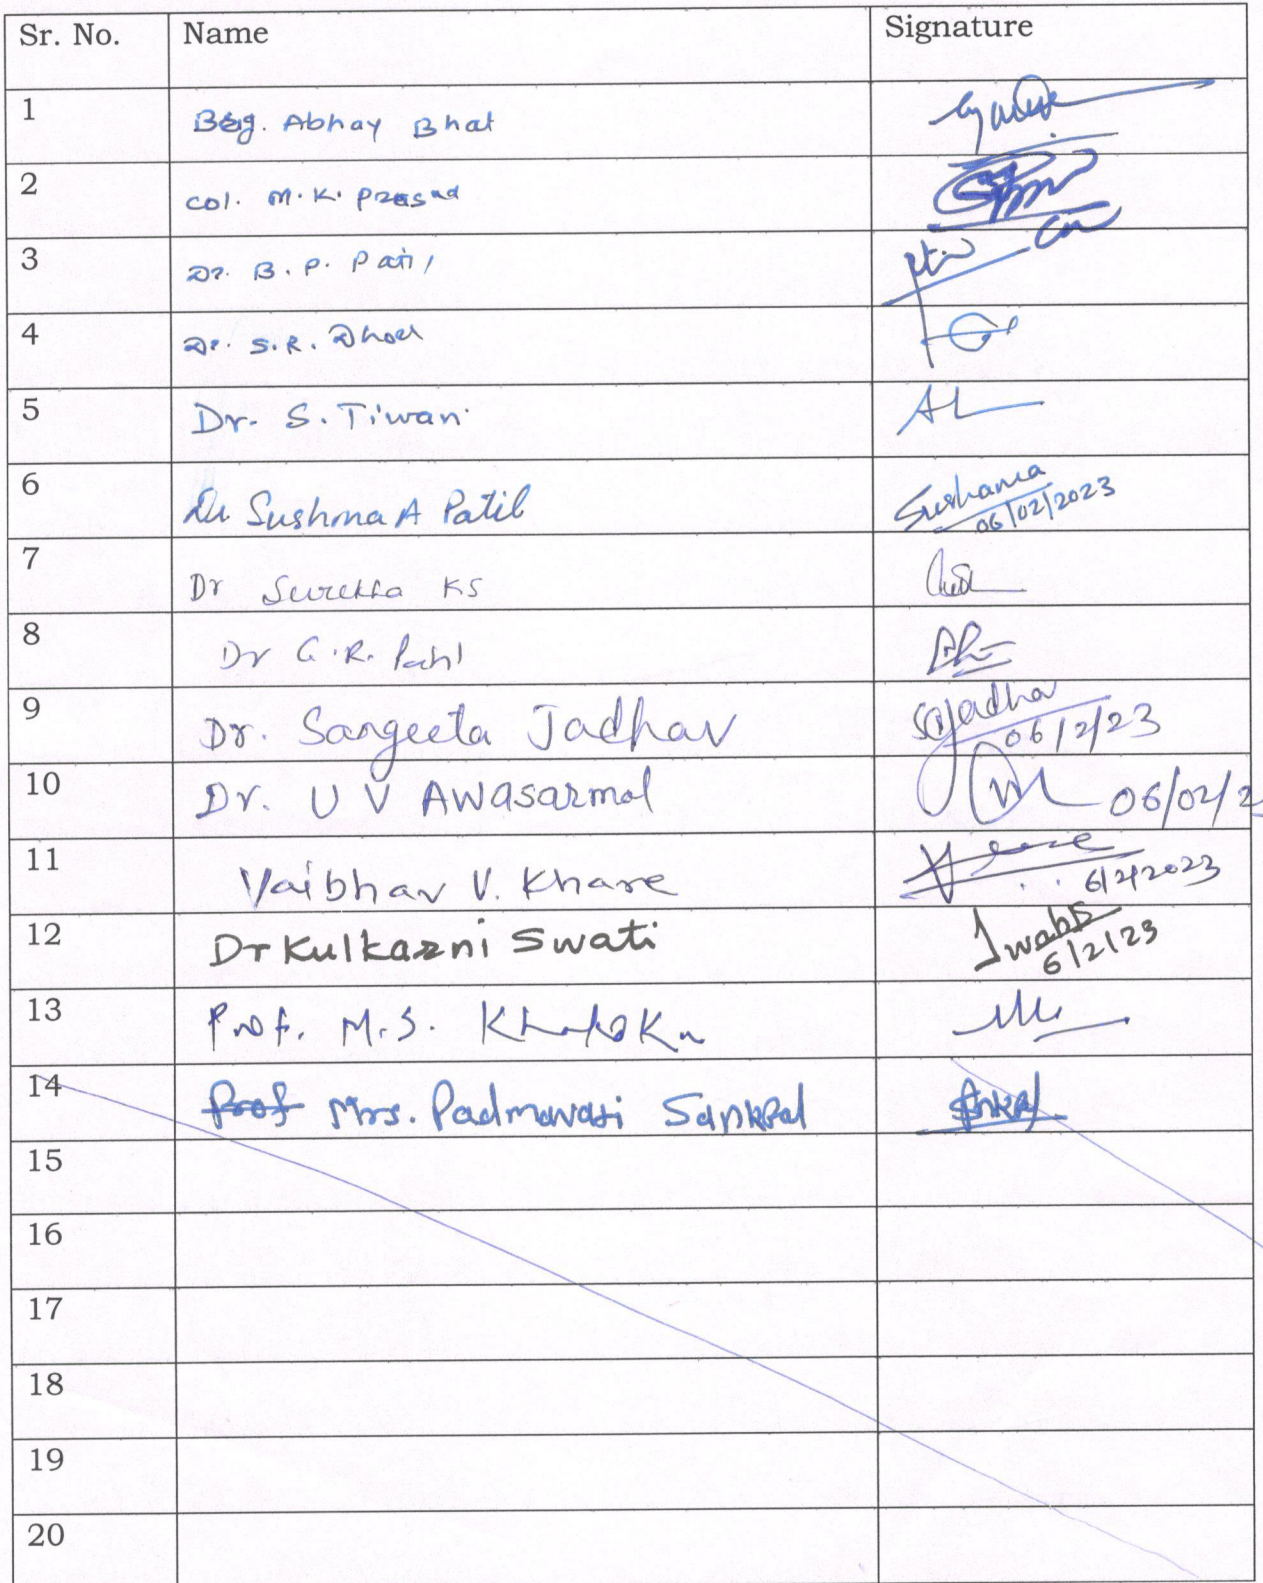 Sr. No. Name Signature
1 Brig. Abhay Bhat
2 Col. M.K. Prasad
3 Dr. B.P. Patil
4 Dr. S.R. Dhore
5 Dr. S. Tiwari
6 Dr Sushma A Patil Sushama
06/02/2023
7 Dr Surekha KS
8 Dr G.R. Patil
9 Dr. Sangeeta Jadhav SAJadhav
06/2/23
10 Dr. U V Awasarmol 06/02/2
11 Vaibhav V. Khare
6/2/2023
12 Dr Kulkarni Swati Swati
6/2/23
13 Prof. M.S.
14 Prof Mrs. Padmavati Sankpal
15
16
17
18
19
20